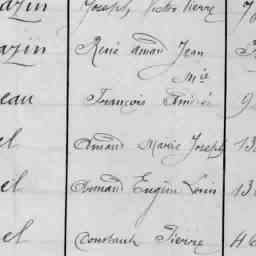 azin Joseph Victor Pierre 7
azin René Amand Jean
Mie
eau François Andre 9
el Amand Marie Joseph 13
el Armand Eugène Louis 13
el Constant Pierre 46